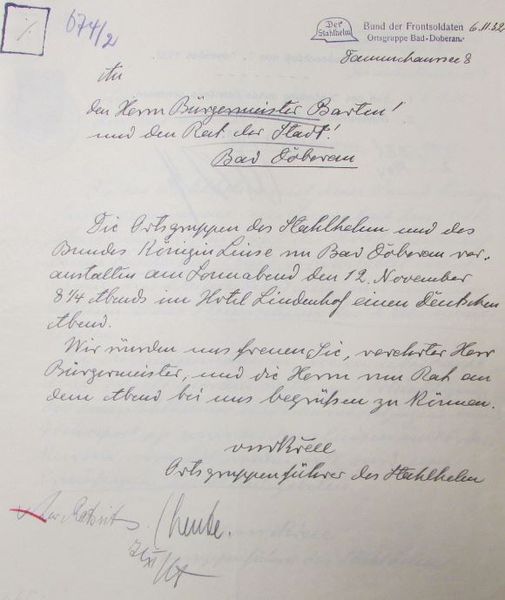 674/2
Der
Stahlhelm
Bund der Frontsoldaten
Ortsgruppe Bad-Doberan.
6.11.32
Dammchaussee 8
An
den Herrn Bürgermeister Barten!
und den Rat der Stadt!
Bad Doberan
Die Ortsgruppen des Stahlhelm und des
Bundes Königin Luise in Bad Doberan ver-
anstalten am Sonnabend den 12. November
8 1/4 Abends im Hotel Lindenhof einen Deutschen
Abend.
Wir würden uns freuen Sie, verehrter Herr
Bürgermeister, und die Herrn vom Rat an
dem Abend bei uns begrüßen zu können.
Ortsgruppenführer des Stahlhelm